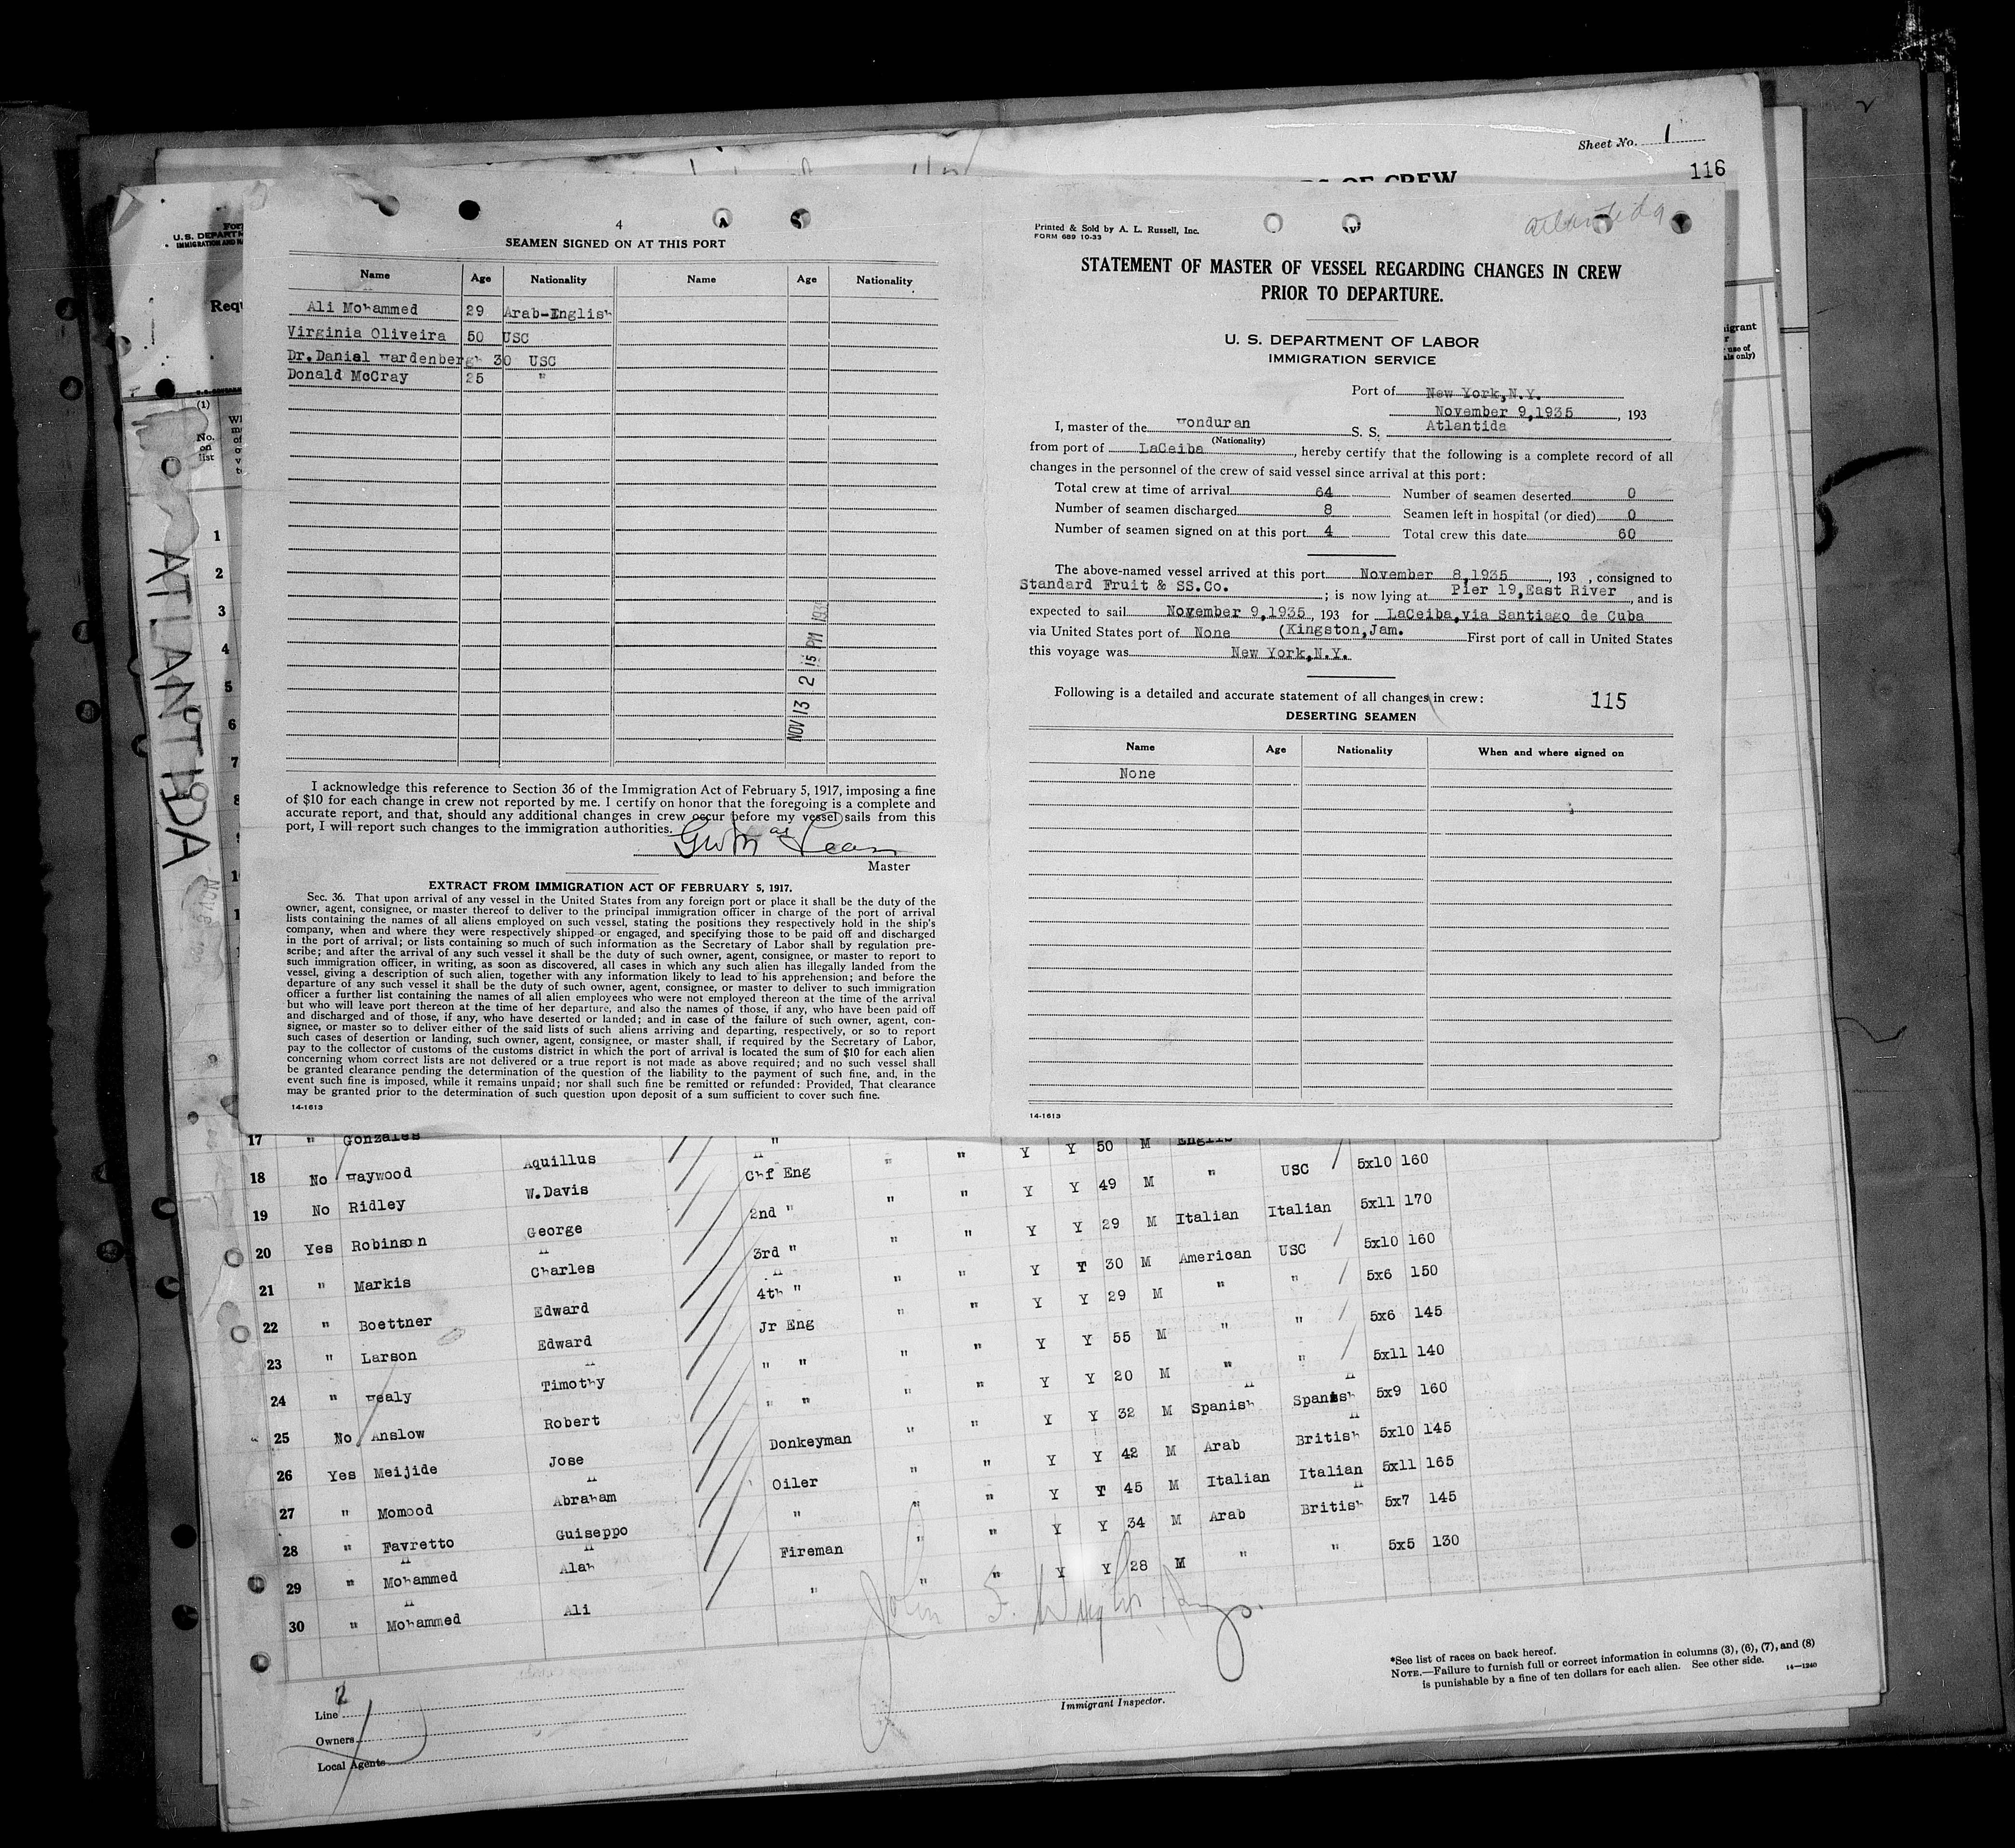 Sheet No. 1
116
OF CREW
4
SEAMEN SIGNED ON AT THIS PORT
Name Age Nationality Name Age Nationality
Ali Mohammed 29 Arab-English
Virginia Oliveira 50 USC
Dr.Daniel Hardenbergh 30 USC
Donald McCray 25 "
NOV 13 2 15 PM 1935
I acknowledge this reference to Section 36 of the Immigration Act of February 5, 1917, imposing a fine
of $10 for each change in crew not reported by me. I certify on honor that the foregoing is a complete and
accurate report, and that, should any additional changes in crew occur before my vessel sails from this
port, I will report such changes to the immigration authorities.
Master
EXTRACT FROM IMMIGRATION ACT OF FEBRUARY 5, 1917.
Sec. 36. That upon arrival of any vessel in the United States from any foreign port or place it shall be the duty of the
owner, agent, consignee, or master thereof to deliver to the principal immigration officer in charge of the port of arrival
lists containing the names of all aliens employed on such vessel, stating the positions they respectively hold in the ship's
company, when and where they were respectively shipped or engaged, and specifying those to be paid off and discharged
in the port of arrival; or lists containing so much of such information as the Secretary of Labor shall by regulation pre-
scribe; and after the arrival of any such vessel it shall be the duty of such owner, agent, consignee, or master to report to
such immigration officer, in writing, as soon as discovered, all cases in which any such alien has illegally landed from the
vessel, giving a description of such alien, together with any information likely to lead to his apprehension; and before the
departure of any such vessel it shall be the duty of such owner, agent, consignee, or master to deliver to such immigration
officer a further list containing the names of all alien employees who were not employed thereon at the time of the arrival
but who will leave port thereon at the time of her departure, and also the names of those, if any, who have been paid off
and discharged and of those, if any, who have deserted or landed; and in case of the failure of such owner, agent, con-
signee, or master so to deliver either of the said lists of such aliens arriving and departing, respectively, or so to report
such cases of desertion or landing, such owner, agent, consignee, or master shall, if required by the Secretary of Labor,
pay to the collector of customs of the customs district in which the port of arrival is located the sum of $10 for each alien
concerning whom correct lists are not delivered or a true report is not made as above required; and no such vessel shall
be granted clearance pending the determination of the question of the liability to the payment of such fine, and, in the
event such fine is imposed, while it remains unpaid; nor shall such fine be remitted or refunded: Provided, That clearance
may be granted prior to the determination of such question upon deposit of a sum sufficient to cover such fine.
14-1613
Printed & Sold by A. L. Russell, Inc.
FORM 689 10-33
Atlantida
STATEMENT OF MASTER OF VESSEL REGARDING CHANGES IN CREW
PRIOR TO DEPARTURE.
U. S. DEPARTMENT OF LABOR
IMMIGRATION SERVICE
Port of New York,N.Y.
November 9,1935, 193
I, master of the Honduran S. S. Atlantida
(Nationality)
from port of LaCeiba, hereby certify that the following is a complete record of all
changes in the personnel of the crew of said vessel since arrival at this port:
Total crew at time of arrival 64 Number of seamen deserted 0
Number of seamen discharged 8 Seamen left in hospital (or died) 0
Number of seamen signed on at this port 4 Total crew this date 60
The above-named vessel arrived at this port November 8,1935, 193 , consigned to
Standard Fruit & SS.Co. ; is now lying at Pier 19,East River, and is
expected to sail November 9,1935, 193 for LaCeiba,via Santiago de Cuba
via United States port of None (Kingston,Jam. First port of call in United States
this voyage was New York,N.Y.
Following is a detailed and accurate statement of all changes in crew: 115
DESERTING SEAMEN
Name Age Nationality When and where signed on
None
14-1613
ATLANTIDA
(1)
No. on list
1
2
3
4
5
6
7
8
17 " Gonzales " Y Y 50 M
18 No Haywood Aquillus Chf Eng " " Y Y 49 M " USC 5x10 160
19 No Ridley W.Davis 2nd " " " Y Y 29 M Italian Italian 5x11 170
20 Yes Robinson George 3rd " " " Y Y 30 M American USC 5x10 160
21 " Markis Charles 4th " " " Y Y 29 M " " 5x6 150
22 " Boettner Edward Jr Eng " " Y Y 55 M " " 5x6 145
23 " Larson Edward " " " " Y Y 20 M " " 5x11 140
24 " Healy Timothy " " " " Y Y 32 M Spanish Spanish 5x9 160
25 No Anslow Robert Donkeyman " " Y Y 42 M Arab British 5x10 145
26 Yes Meijide Jose Oiler " " Y Y 45 M Italian Italian 5x11 165
27 " Momood Abraham " " " Y Y 34 M Arab British 5x7 145
28 " Favretto Guiseppo Fireman " " Y Y 28 M " " 5x5 130
29 " Mohammed Alah " " "
30 " Mohammed Ali
Line
Owners
Local Agents
Immigrant Inspector.
*See list of races on back hereof.
NOTE.—Failure to furnish full or correct information in columns (3), (6), (7), and (8)
is punishable by a fine of ten dollars for each alien. See other side. 14—1240